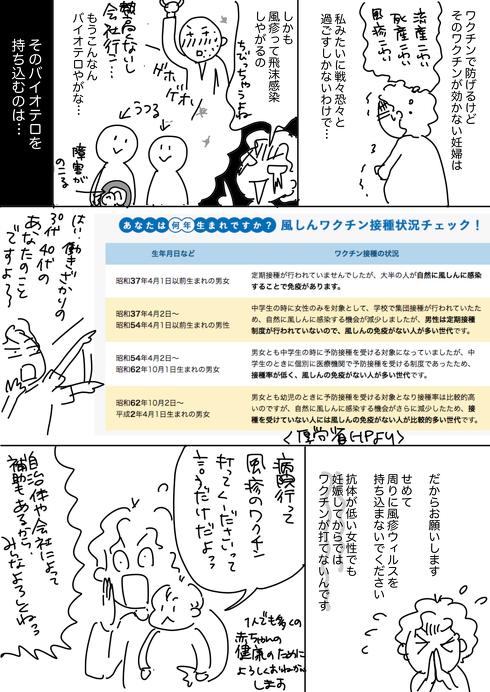 ワクチンで防げるけど
そのワクチンが効かない妊婦は
流産こわい
死産こわい
風疹こわい
私みたいに戦々恐々と
過ごすしかないわけで…
しかも
風疹って飛沫感染
しやがるの
ちびっちゃうよね
ゲホ
ゲホ
熱高くないし
会社行こ…
もうこんなん
バイオテロやがな…
うつる
障害が
のこる
そのバイオテロを
持ち込むのは…
あなたは何年生まれですか?
風しんワクチン接種状況チェック！
生年月日など
ワクチン接種の状況
昭和37年4月1日以前生まれの男女
定期接種が行われていませんでしたが、大半の人が自然に風しんに感染
することで免疫があります。
昭和37年4月2日～
昭和54年4月1日以前生まれの男性
中学生の時に女性のみを対象として、学校で集団接種が行われていたた
め、自然に風しんに感染する機会が減少しましたが、男性は定期接種
制度が行われていないので、風しんの免疫がない人が多い世代です。
昭和54年4月2日～
昭和62年10月1日生まれの男女
男女とも中学生の時に予防接種を受ける対象になっていましたが、中
学生のときに個別に医療機関で予防接種を受ける制度であったため、
接種率が低く、風しんの免疫がない人が多い世代です。
昭和62年10月2日～
平成2年4月1日生まれの男女
男女とも幼児のときに予防接種を受ける対象となり接種率は比較的高
いのですが、自然に風しんに感染する機会がさらに減少したため、接
種を受けていない人には風しんの免疫がない人が比較的多い世代です。
<厚労省HPより>
はい働きざかりの
30代40代の
あなたのこと
ですよ〜
だからお願いします
せめて
周りに風疹ウィルスを
持ち込まないでください
抗体が低い女性でも
妊娠してからでは
ワクチンが打てないんです
病院行って
風疹のワクチン
打ってくださいって
言うだけだよ?
自治体や会社によって
補助もあるから、
みんなよろしくね?
1人でも多くの
赤ちゃんの
健康のために
よろしくおねがい
します